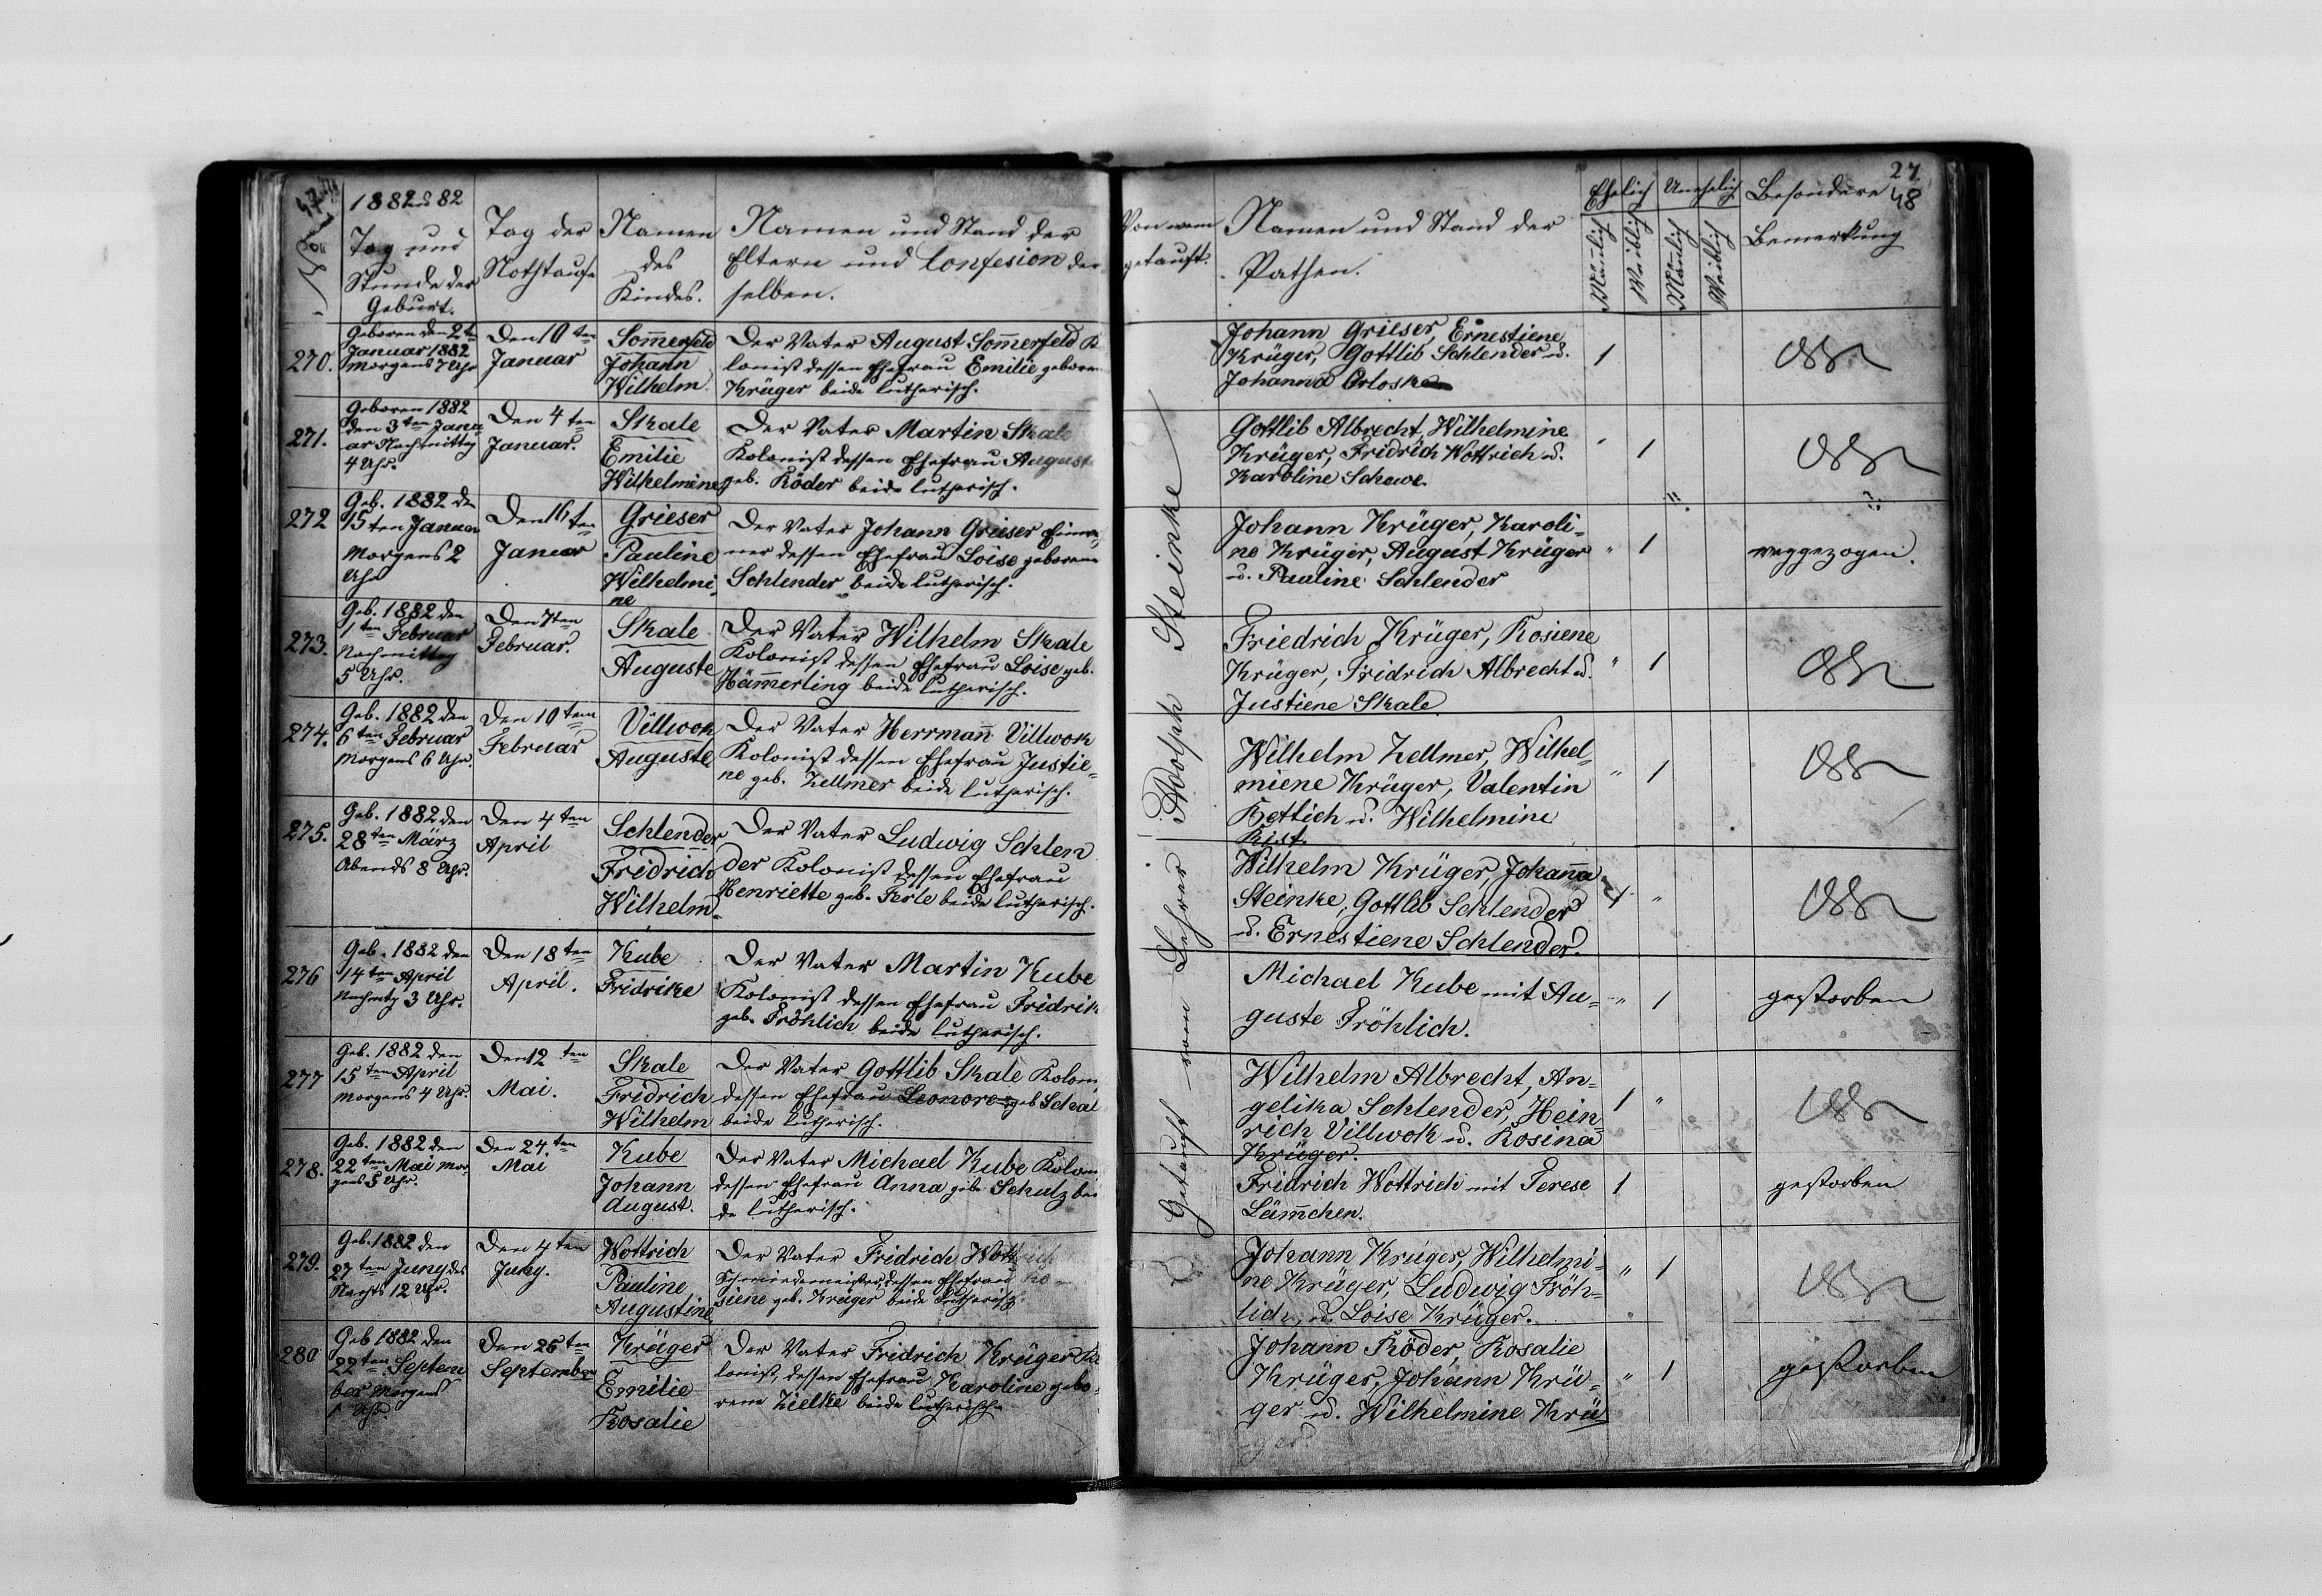 47.
1882 82
Tag und
Stunde der
Geburt.
Tag der
Nothtaufe
Namen
des
Kindes.
Namen und Stand der
Eltern und Confesion der
selben.
270.
Geboren den 2ten
Januar 1882
Morgens 7 Uhr
Den 10ten
Januar
Sommerfeld
Johann
Wilhelm
Der Vater August Sommerfeld K
lonist dessen Ehefrau Emilie geboren
Krüger beide lutherisch.
271.
Geboren 1882
den 3ten Janu
ar Nachmittag
4 Uhr.
Den 4ten
Januar.
Skale
Emilie
Wilhelmine
Der Vater Martin Skale
Kolonist dessen Ehefrau August
geb. Röder beide lutherisch.
272
Geb. 1882 den
15ten Januar
Morgens 2
Uhr
Den 16ten
Januar
Grieser
Pauline
Wilhelmi
ne
Der Vater Johann Grieser Einwo
ner dessen Ehefrau Loise geborene
Schlender beide lutherisch.
273.
Geb. 1882 den
1ten Februar
Nachmittag
5 Uhr.
Den 7ten
Februar.
Skale
Auguste
Der Vater Wilhelm Skale
Kolonist dessen Ehefrau Loise geb.
Hämmerling beide lutherisch.
274.
Geb. 1882 den
6ten Februar
Morgens 6 Uhr.
Den 10ten
Februar
Villwok
Auguste
Der Vater Herrmann Villwok
Kolonist dessen Ehefrau Justie=
ne geb. Zellmer beide lutherisch.
275.
Geb. 1882 den
28ten März
Abends 8 Uhr.
Den 4ten
April
Schlender
Fridrich
Wilhelm
Der Vater Ludwig Schlen
der Kolonist dessen Ehefrau
Henriette geb. Ferle beide lutherisch.
276
Geb. 1882 den
14ten April
Nachmtg 3 Uhr.
Den 18ten
April.
Kube
Fridrike
Der Vater Martin Kube
Kolonist dessen Ehefrau Fridrik
geb. Fröhlich beide lutherisch.
277
Geb. 1882 den
15ten April
Morgens 4 Uhr.
Den 12ten
Mai.
Skale
Fridrich
Wilhelm
Der Vater Gottlib Skale Kolon
dessen Ehefrau Leonore geb Schal
beide lutherisch.
278.
Geb. 1882 den
22ten Mai Mor
gens 5 Uhr.
Den 24ten
Mai
Kube
Johann
August.
Der Vater Michael Kube Kolon
dessen Ehefrau Anna geb. Schulz bei
de lutherisch.
279.
Geb. 1882 den
27ten Juny des
Nachts 12 Uhr.
Den 4ten
Juny.
Wottrich
Pauline
Augustine
Der Vater Fridrich Wottrich
Schmiedemeister, dessen Ehefrau Ro
siene geb. Krüger beide lutherisch.
280
Geb 1882 den
22ten Septem
ber Morgens
Uhr.
Den 26ten
September
Krüger
Emilie
Rosalie
Der Vater Fridrich Krüger Ko
lonist, dessen Ehefrau Karoline gebo=
rene Zielke beide lutherisch.
27.
48
Von wem
getauft.
Namen und Stand der
Pathen.
Ehelich
Unehelich
Mänlich
Weiblich
Mänlich
Weiblich
Besondere
Bemerkung
Getauft vom Lehrer Adolph Steinke
Johann Grieser, Ernestiene
Krüger, Gottlib Schlender u.
Johanna Orloske
1
Gottlib Albrecht, Wilhelmine
Krüger, Fridrich Wottrich u.
Karoline Schewe.
1
Johann Krüger, Karoli=
ne Krüger, August Krüger
u. Pauline Schlender
" 1
weggezogen.
Friedrich Krüger, Rosiene
Krüger, Fridrich Albrecht u.
Justiene Skale
" 1
Wilhelm Zellmer, Wilhel=
miene Krüger, Valentin
Rettich u. Wilhelmine
Rist.
" 1
Wilhelm Krüger, Johanna
Steinke, Gottlib Schlender
u. Ernestiene Schlender.
1 "
Michael Kube mit Au=
guste Fröhlich.
" 1
gestorben
Wilhelm Albrecht, An=
gelika Schlender, Hein=
rich Villwok u. Rosina
Krüger.
1 "
Fridrich Wottrich mit Terese
Lämchen.
1
gestorben
Johann Krüger, Wilhelmi=
ne Krüger, Ludwig Fröh=
lich, u. Loise Krüger.
" 1
Johann Röder, Rosalie
Krüger, Johann Krü=
ger u. Wilhelmine Krü
ger.
" 1
gestorben